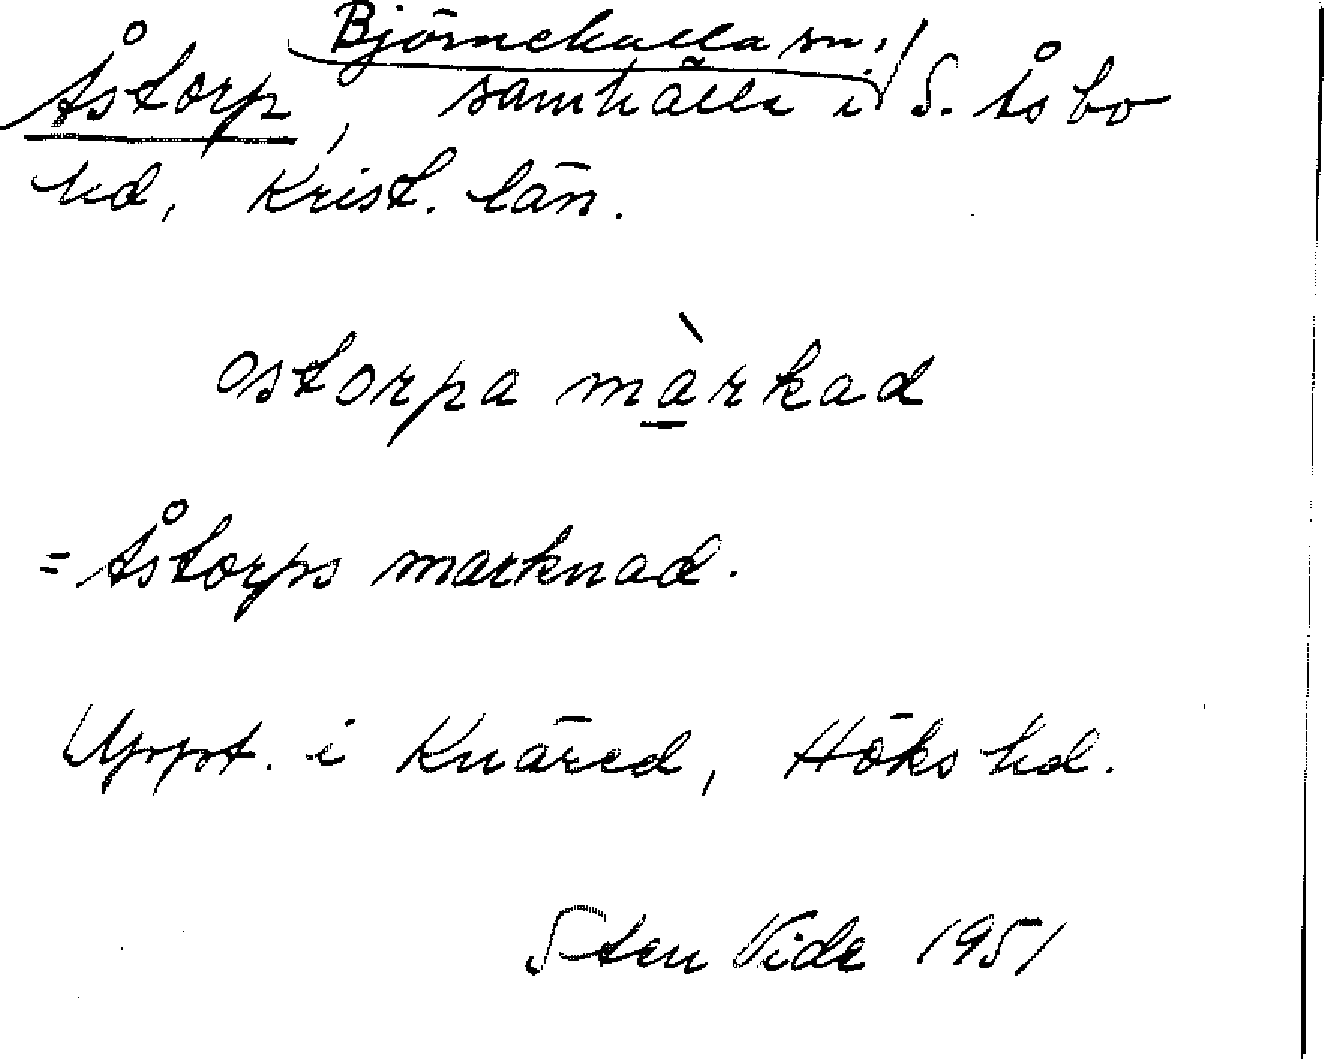 Björnekulla sn,
Åstorp, samhälle i S. Åsbo
hd, Krist. län.
ostorpa màrkad
= Åstorps marknad.
Uppt. i Knäred, Höks hd.
Sten Vide 1951